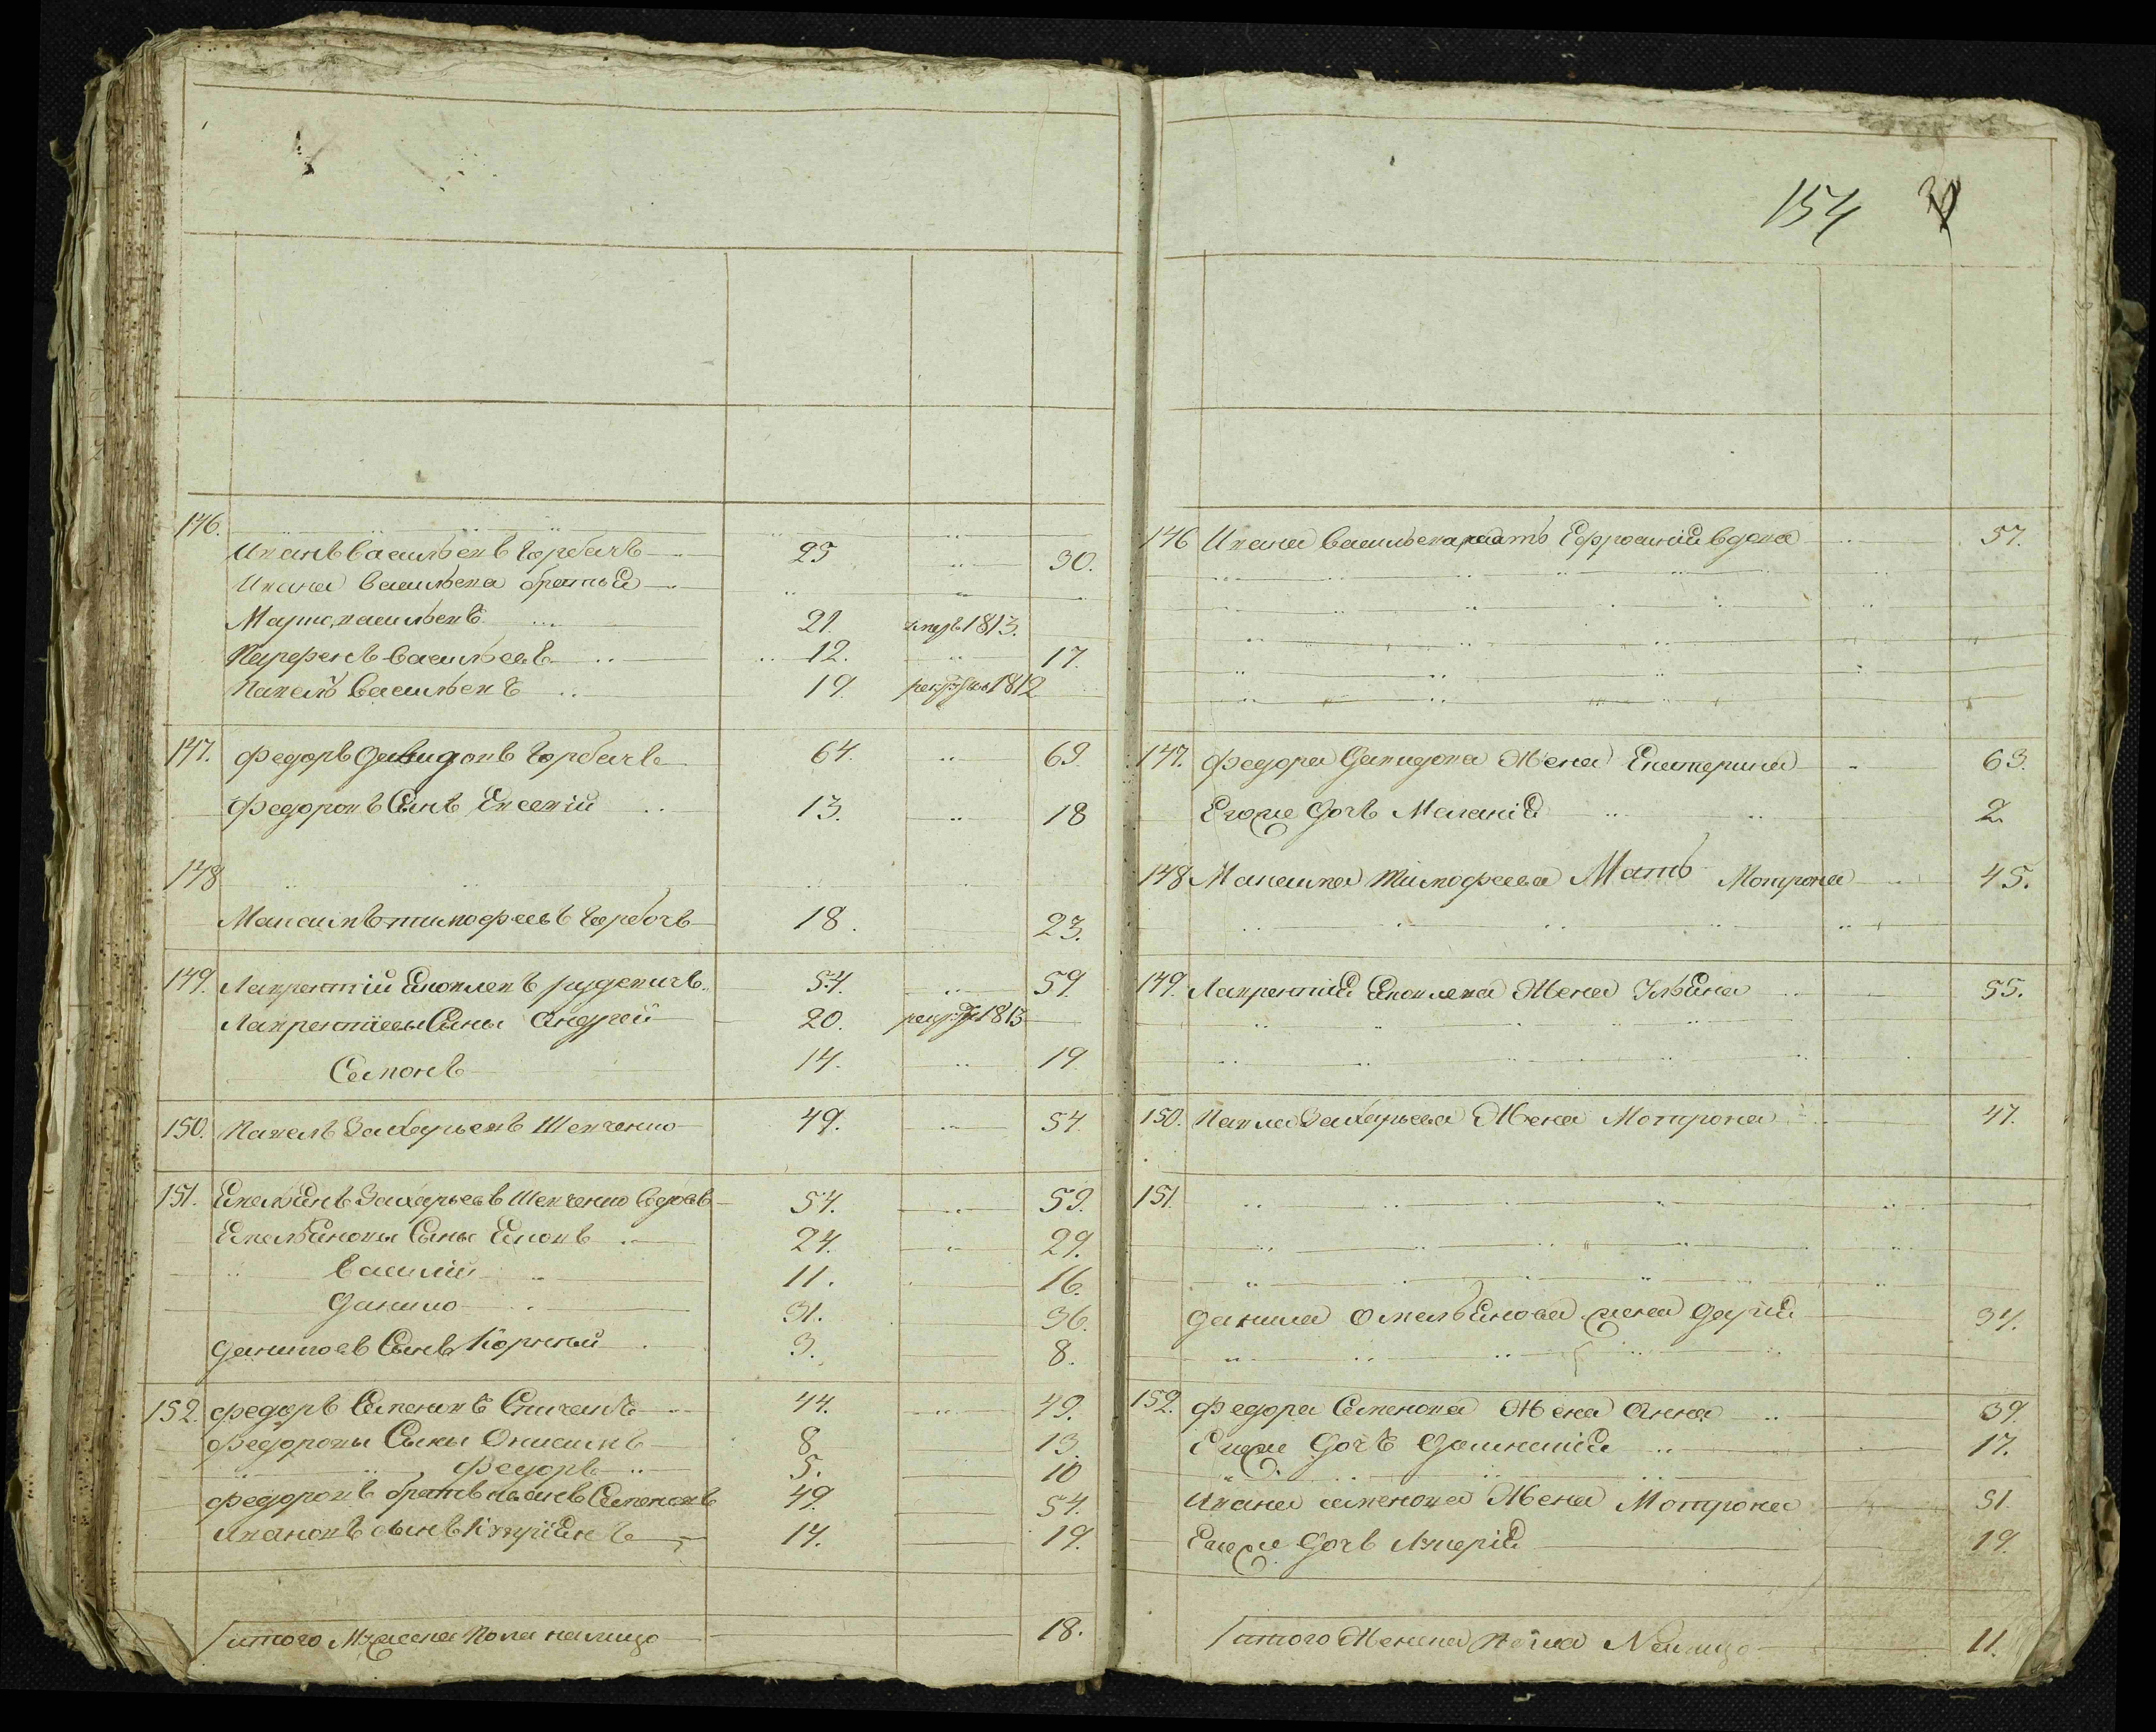 154
146.
Иванъ Васильевъ Горбачъ 25 30.
Ивана Васильева братья
Марко Васильевъ 21. умеръ 1813.
Парфенъ Васильевъ 12. 17.
Павелъ Васильевъ 19. рекрутъ 1812
147. Федоръ Давидовъ Горбачъ 64. 69.
Федоровъ Сынъ Евсевій 13. 18
148
Максимъ Тимофеевъ Горбачъ 18. 23.
149. Лаврентій Яковлевъ 54. 59.
Лаврентіевы Сыны Андрей 20. рекрутъ 1813
Семонъ 14. 19
150. Павелъ Захарьевъ Шевченко 49. 54
151. Емельянъ Захарьевъ Шевченко вдовъ 54. 59.
Емельяновы Сыны Яковъ 24. 29.
Василій 11. 16.
Данило 31. 36.
Даниловъ Сынъ Корнѣй 3. 8.
152. Федоръ Семеновъ 44. 49.
Федоровы Сыны Онисимъ 8 13
Федоръ 5. 10
Федоровъ братъ Иванъ Семеновъ 49. 54.
Ивановъ сынъ 14. 19.
итого Мужеска пола налицо 18.
146 Ивана Васильева мать Ефросинія вдова 57.
147. Федора Давидова Жена Екатерина 63.
Егоже дочь Меланія 2
148 Максима Тимофеева Мать Мотрона 45.
149. Лаврентія Яковлева Жена Ульяна 55.
150. Павла Захарьева Жена Мотрона 47.
151.
Данила Омельянова жена Дарія 34.
152. Федора Семенова Жена Анна 39.
Егоже дочь Домникія 17.
Ивана семенова Жена Мотрона 51
Егоже дочь 19.
итого Женска пола Налицо 11.